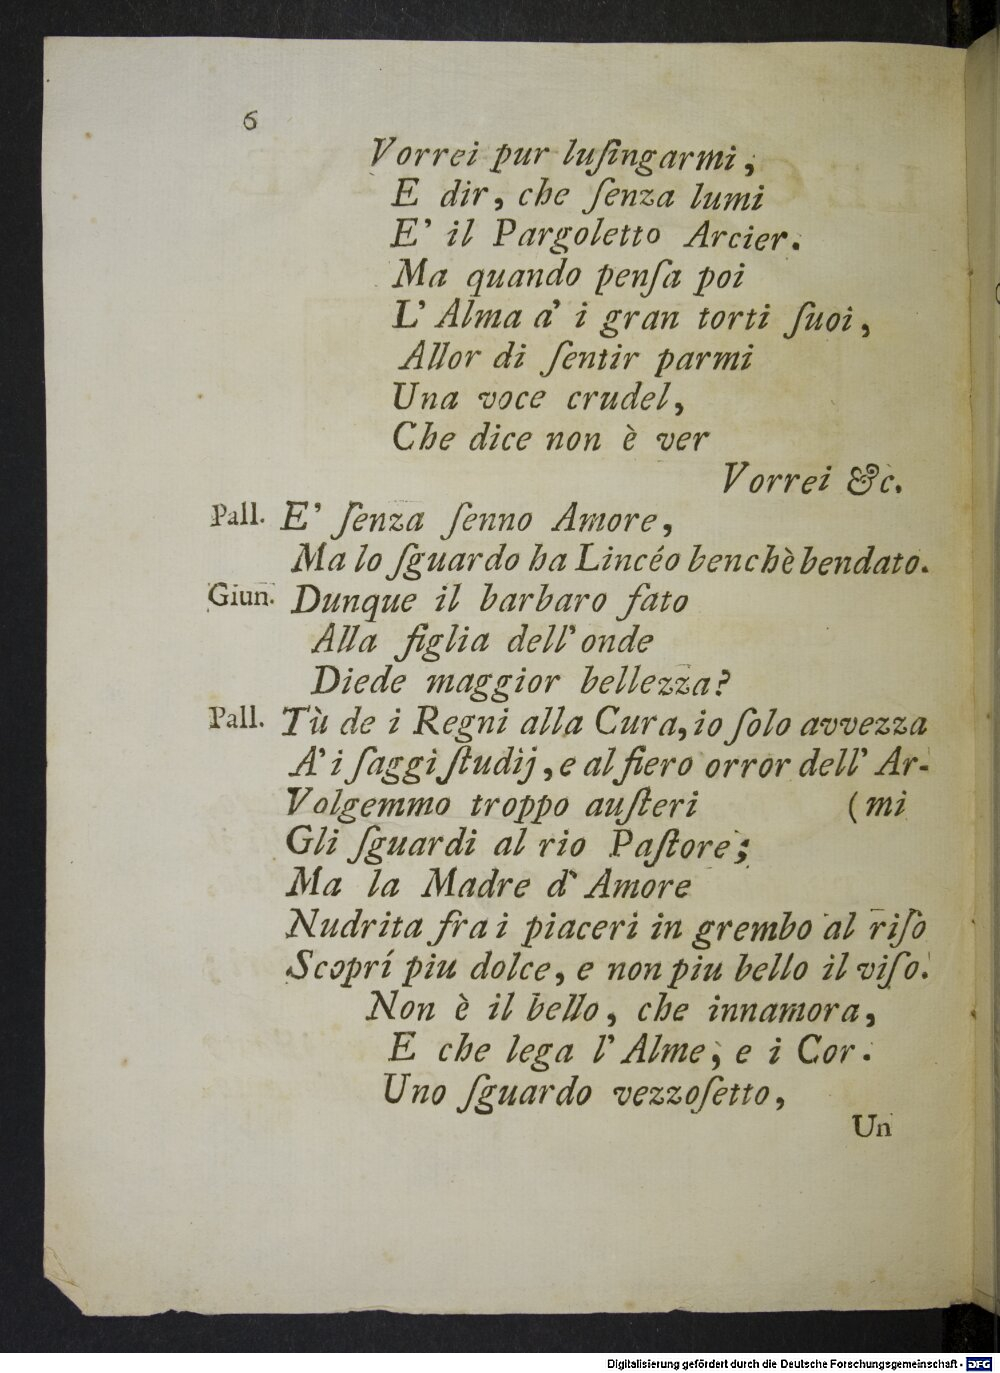 6
Vorrei pur luſingarmi,
E dir, che ſenza lumi
E' il Pargoletto Arcier.
Ma quando penſa poi
L' Alma a' i gran torti ſuoi,
Allor di ſentir parmi
Una voce crudel,
Che dice non è ver
Vorrei &c.
Pall. E' ſenza ſenno Amore,
Ma lo ſguardo ha Lincéo benchè bendato.
Giun. Dunque il barbaro fato
Alla figlia dell' onde
Diede maggior bellezza?
Pall. Tù de i Regni alla Cura, io ſolo avvezza
A' i ſaggi ſtudij, e al fiero orror dell' Ar-
Volgemmo troppo auſteri (mi
Gli ſguardi al rio Paſtore;
Ma la Madre d' Amore
Nudrita fra i piaceri in grembo al riſo
Scoprí piu dolce, e non piu bello il viſo.
Non è il bello, che innamora,
E che lega l' Alme, e i Cor.
Uno ſguardo vezzoſetto,
Un
Digitalisierung gefördert durch die Deutsche Forschungsgemeinschaft - DFG